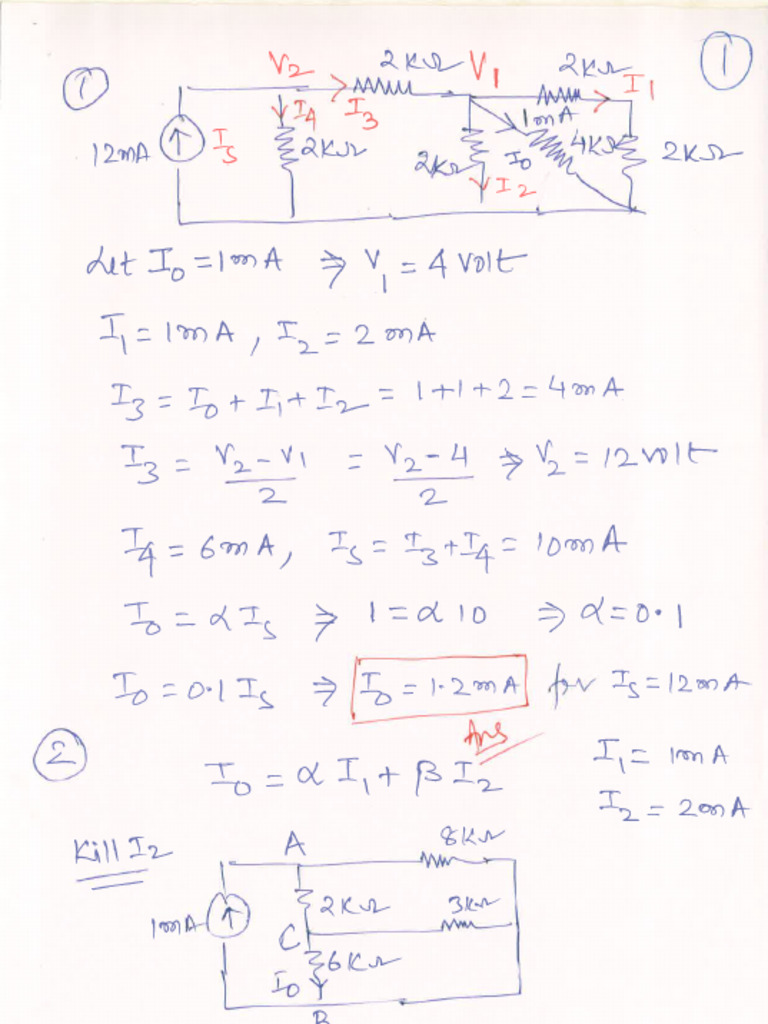 1
1
V2 2KΩ V1 2KΩ I1
I4 I3 1mA
12mA Is 2KΩ 2KΩ I0 4KΩ 2KΩ
I2
Let I0 = 1mA ⇒ V1 = 4 volt
I1 = 1mA, I2 = 2mA
I3 = I0 + I1 + I2 = 1+1+2 = 4mA
I3 = (V2 - V1)/2 = (V2 - 4)/2 ⇒ V2 = 12 volt
I4 = 6mA, Is = I3 + I4 = 10mA
I0 = α Is ⇒ 1 = α 10 ⇒ α = 0.1
I0 = 0.1 Is ⇒ I0 = 1.2mA for Is = 12mA
Ans
2
I0 = α I1 + β I2
I1 = 1mA
I2 = 2mA
Kill I2
A 8KΩ
1mA 2KΩ 3KΩ
C 6KΩ
I0
B